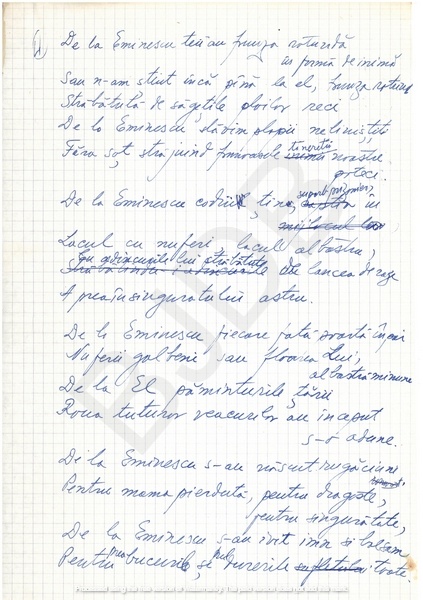 1
De la Eminescu teii au frunza rotundă
în formă de inimă
Sau n-am știut încă pînă la el, frunza rotundă
Străbătută de săgețile ploilor reci
De la Eminescu, slăvim plopii neliniștiți
Fără soț străjuind tinereții
noastre
poteci.
De la Eminescu codrii țin, în
mijlocul lor
Lacul cu nuferi, lacul albastru,
cu adîncurile lui străbătute
Străbătându-i adîncurile de lancea de raze
A preaînsinguratului astru.
De la Eminescu fiecare fată poartă în păr
Nuferii galbeni sau floarea Lui,
albastră minune
De la El pămînturile țării
Roua tuturor veacurilor au început
s-o adune.
De la Eminescu s-au născut rugăciuni
Pentru mama pierdută, pentru dragoste,
pentru singurătate,
De la Eminescu s-au ivit imn și balsam
Pentru bucurii, și durerile sufletului toate.
BJDB